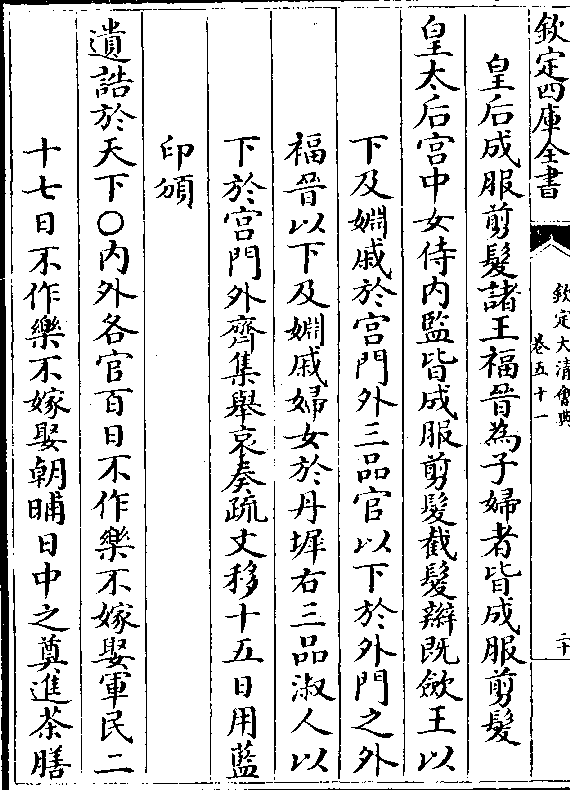 欽定四庫全書
欽定大清會典
卷五十一
二十
皇后成服剪髮諸王福晉為子婦者皆成服剪髮
皇太后宮中女侍內監皆成服剪髮截髮辮既斂王以
下及姻戚於宮門外三品官以下於外門之外
福晉以下及姻戚婦女於丹墀右三品淑人以
下於宮門外齊集舉哀奏疏文移十五日用藍
印頒
遺誥於天下○內外各官百日不作樂不嫁娶軍民二
十七日不作樂不嫁娶朝晡日中之奠進茶膳